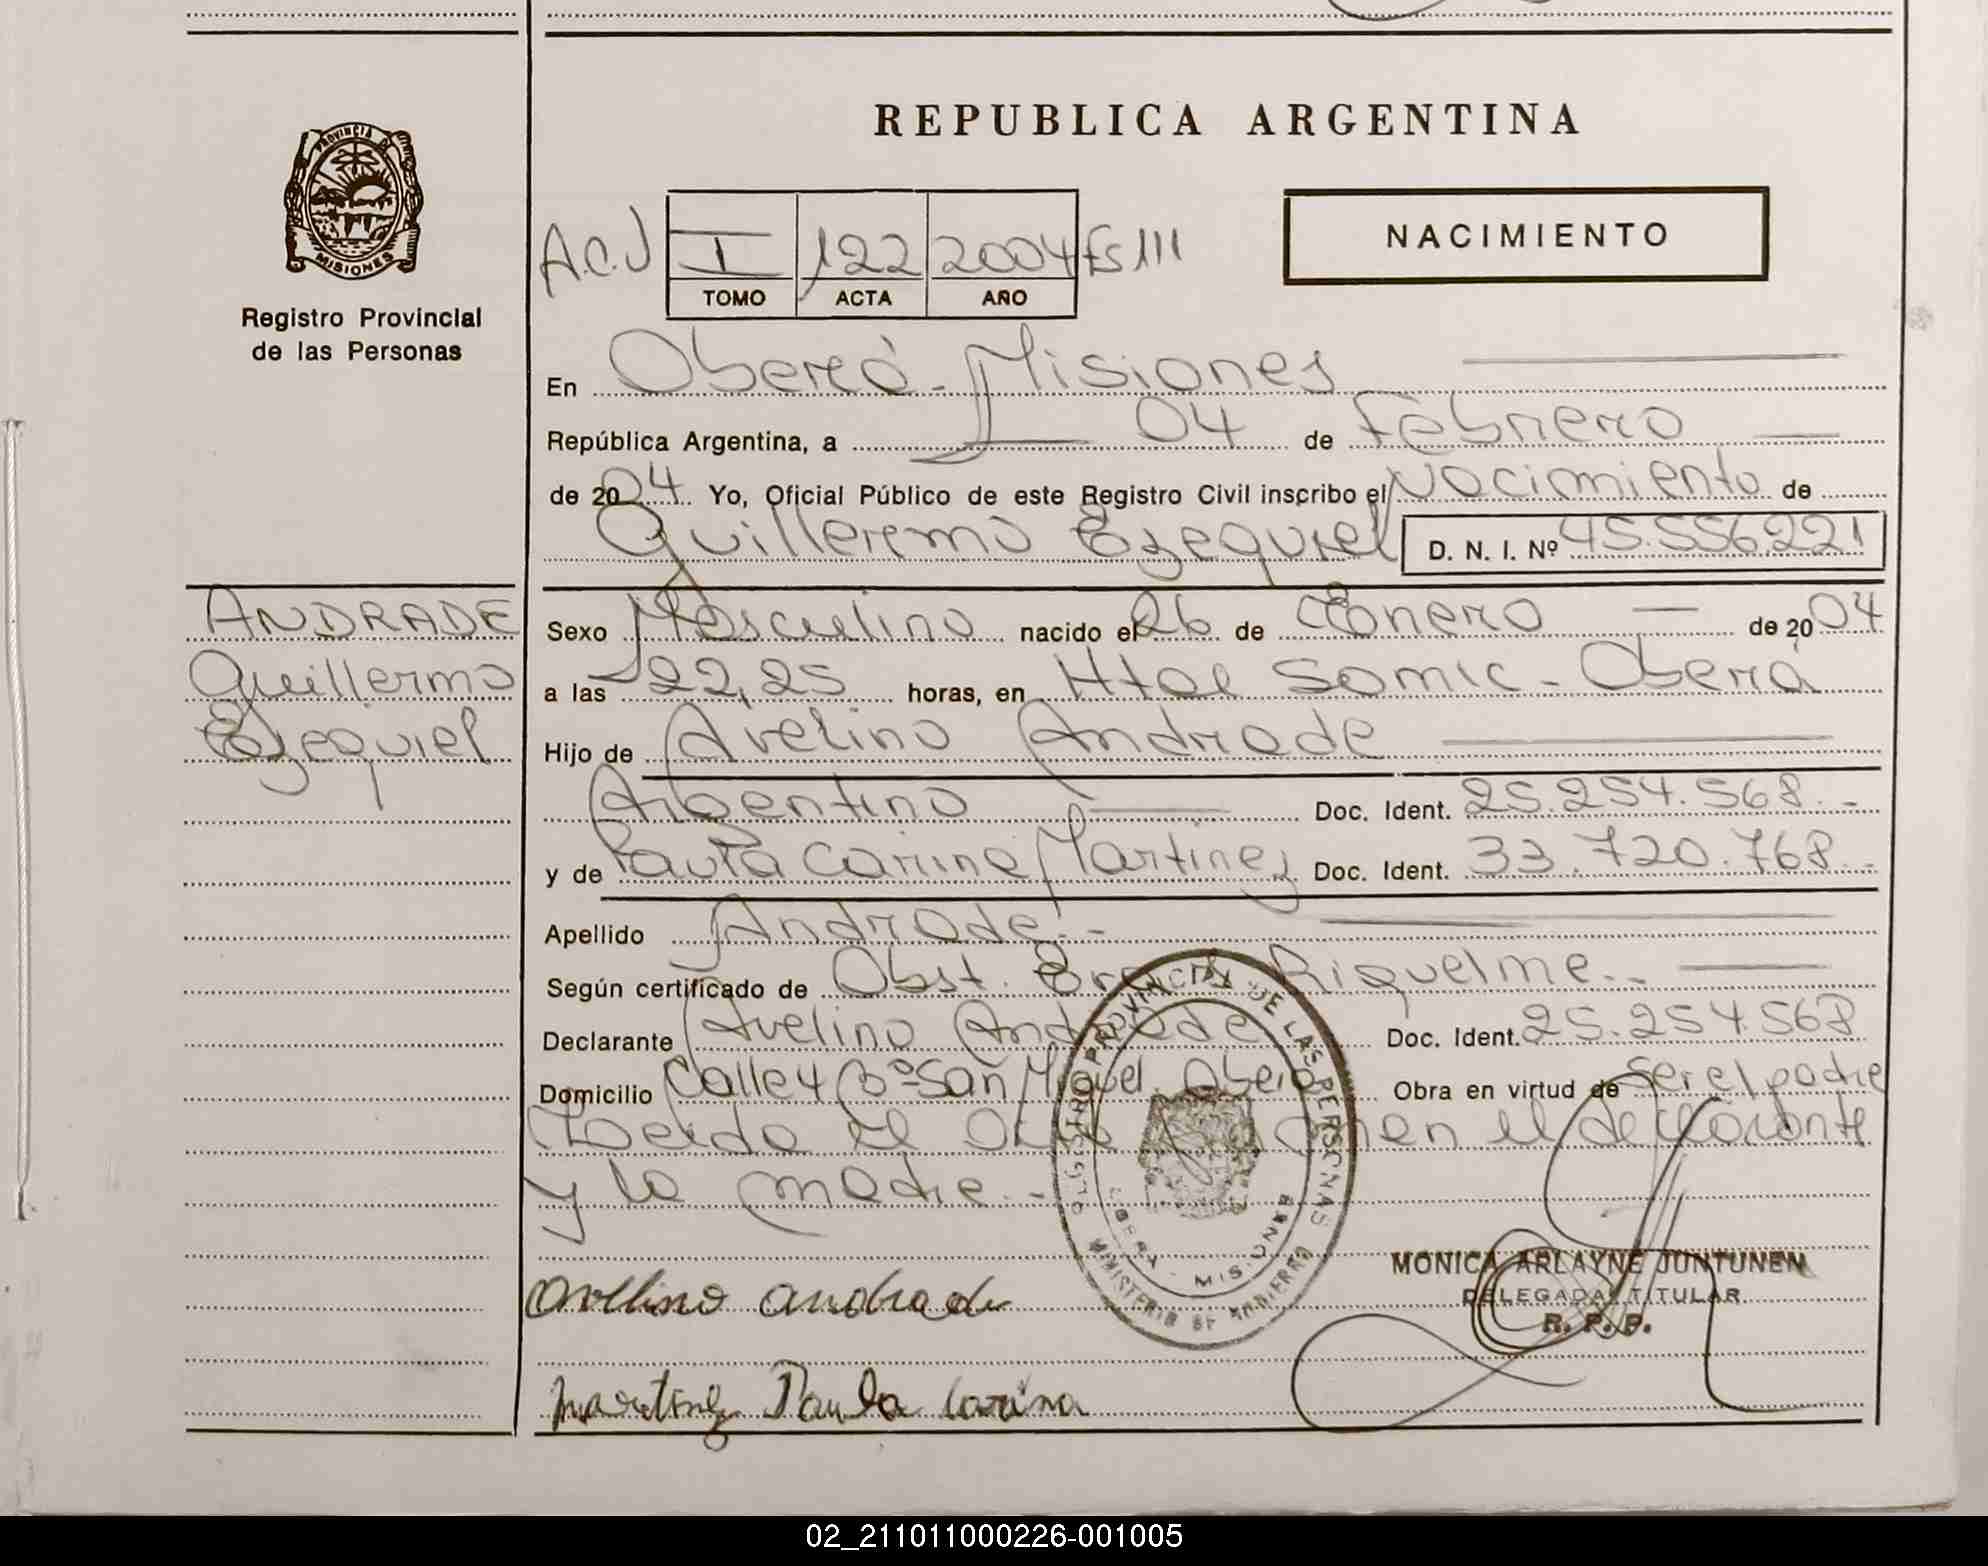 REPUBLICA ARGENTINA
PROVINCIA DE
MISIONES
Registro Provincial
de las Personas
NACIMIENTO
A.C.J I 122 2004 Fs 111
TOMO ACTA AÑO
En Oberá - Misiones
República Argentina, a 04 de Febrero
de 2004 Yo, Oficial Público de este Registro Civil inscribo el Nacimiento de
Guillermo Ezequiel D. N. I. Nº 45.556.221
ANDRADE
Guillermo
Ezequiel
Sexo Masculino nacido el 26 de Enero de 2004
a las 22,25 horas, en Htal Samic - Oberá
Hijo de Avelino Andrade
Argentino Doc. Ident. 25.254.568.-
y de Paula Carina Martinez Doc. Ident. 33.720.768.-
Apellido Andrade.-
Según certificado de Obst. Riquelme.-
Declarante Avelino Andrade Doc. Ident. 25.254.568
Domicilio Calle 4 Bº San Miguel. Oberá Obra en virtud de Ser el padre
Leida el Acta el declarante
y la madre.-
REGISTRO PROVINCIAL DE LAS PERSONAS
MINISTERIO DE GOBIERNO
OBERA - MISIONES
MONICA ARLAYNE JUNTUNEN
DELEGADA TITULAR
R. P. P.
Avellino andrade
Martinez Paula Carina
02_211011000226-001005